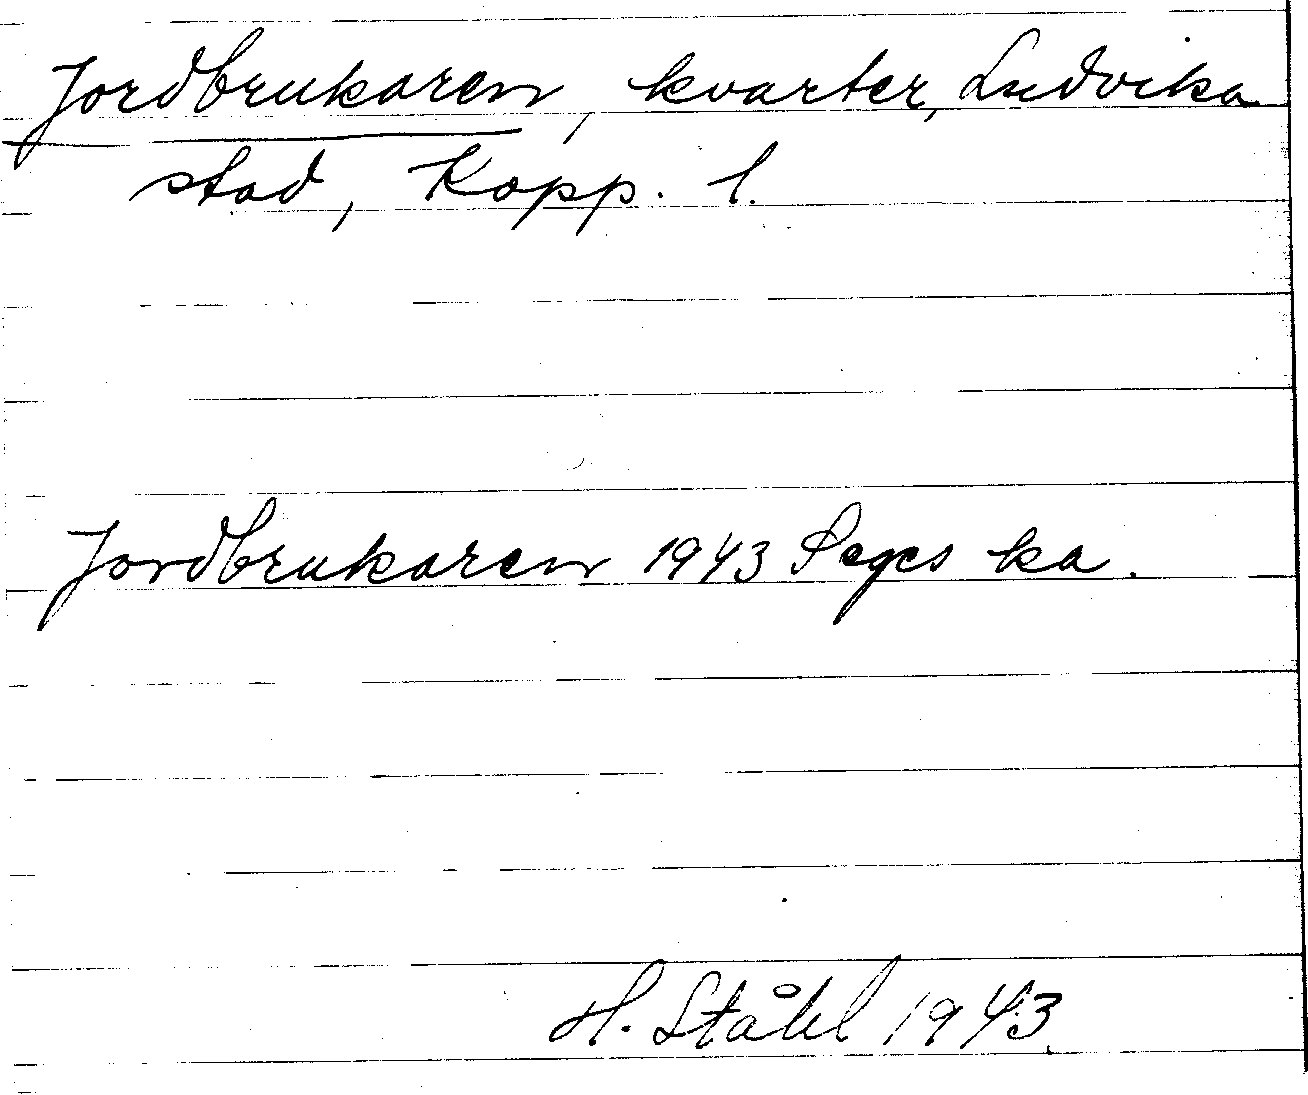 Jordbrukaren, kvarter, Ludvika
stad, Kopp. l.
Jordbrukaren 1943 Seges ka.
H. Ståhl 1943.